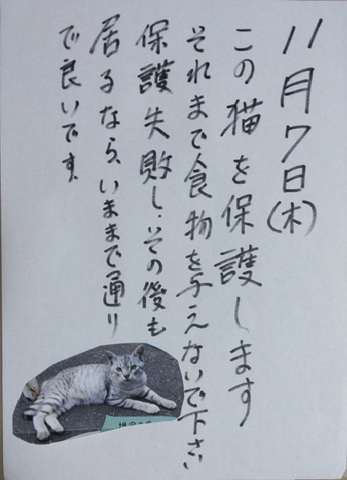 11月7日(木)
この猫を保護します
それまで食物を与えないで下さい
保護失敗し、その後も
居るなら、いままで通り
で良いです。